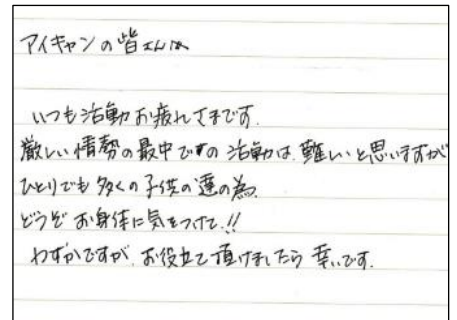 アイキャンの皆さんへ
いつも活動お疲れさまです.
厳しい情勢の最中での活動は、難しいと思いますが
ひとりでも多くの子供の達の為、
どうぞお身体に気をつけて!!
わずかですが、お役立て頂けましたら幸いです.